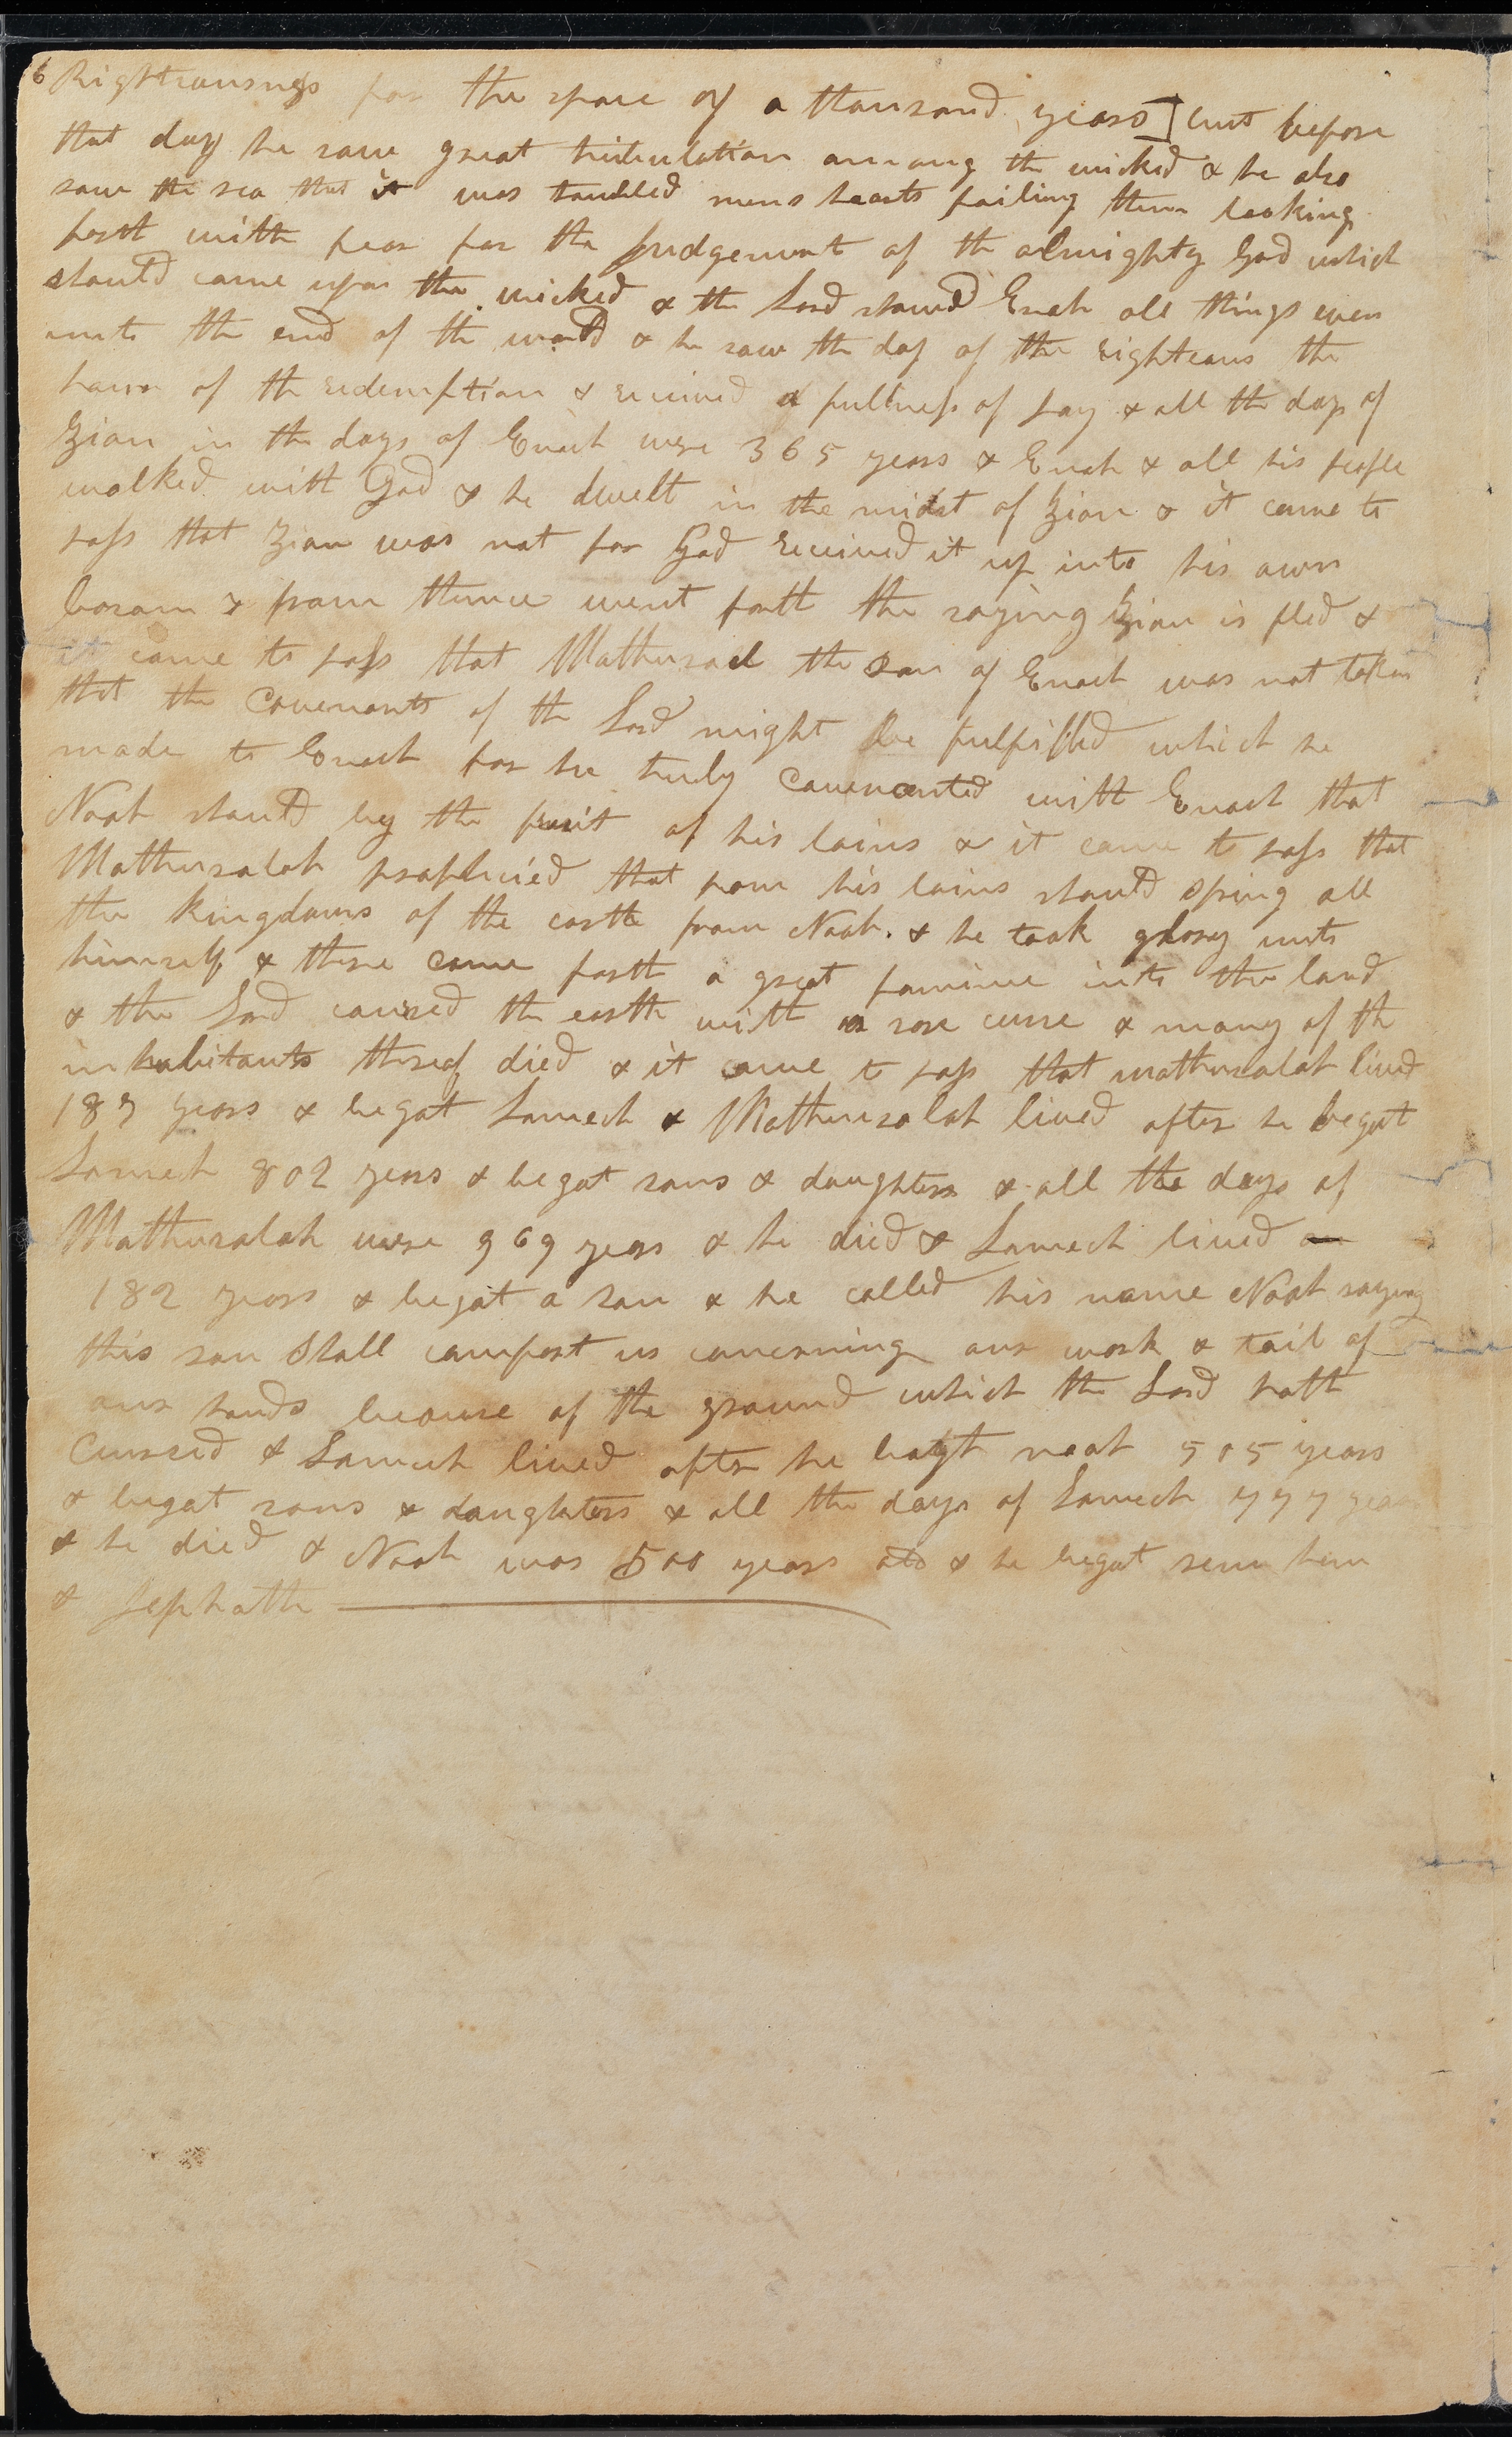 6 Righteousness for the space of a thousand years] but before
that day he saw great tribulation among the wicked & he also
saw the sea that it was troubled mens hearts failing them looking
forth with fear for the Judgement of the almighty God which
should come upon the wicked & the Lord shewed Enoch all things even
unto the end of the world & he saw the day of the righteous the
hour of the redemption & recieved a fullness of Joy & all the days of
Zion in the days of Enoch were 365 years & Enoch & all his people
walked with God & he dwelt in the midst of Zion & it came to
pass that Zion was not for God recieved it up into his own
bosom & from thence went forth the saying Zion is fled &
it came to pass that Mathusael the son of Enoch was not taken
that the Covenants of the Lord might be fulfilled which he
made to Enoch for he truly Covenanted with Enoch that
Noah should by the fruit of his loins & it came to pass that
Mathusalah prophecied that from his loins should spring all
the kingdoms of the earth from Noah. & he took glory unto
himself & there came forth a great famine into the land
& the Lord cursed the earth with a sore curse & many of the
inhabitants thereof died & it came to pass that mathusalah lived
187 years & begat Lamech & Mathusalah lived after he begat
Lamech 802 years & begat sons & daughters & all the days of
Mathusalah were 969 years & he died & Lamech lived
182 years & begat a son & he called his name Noah saying
this son Shall comfort us concerning our work & toil of
our hands because of the ground which the Lord hath
Curssed & Lamech lived after he begat noah 505 years
& begat sons & daughters & all the days of Lamech 777 years
& he died & Noah was 500 years old & he begat sem ham
& Jephath